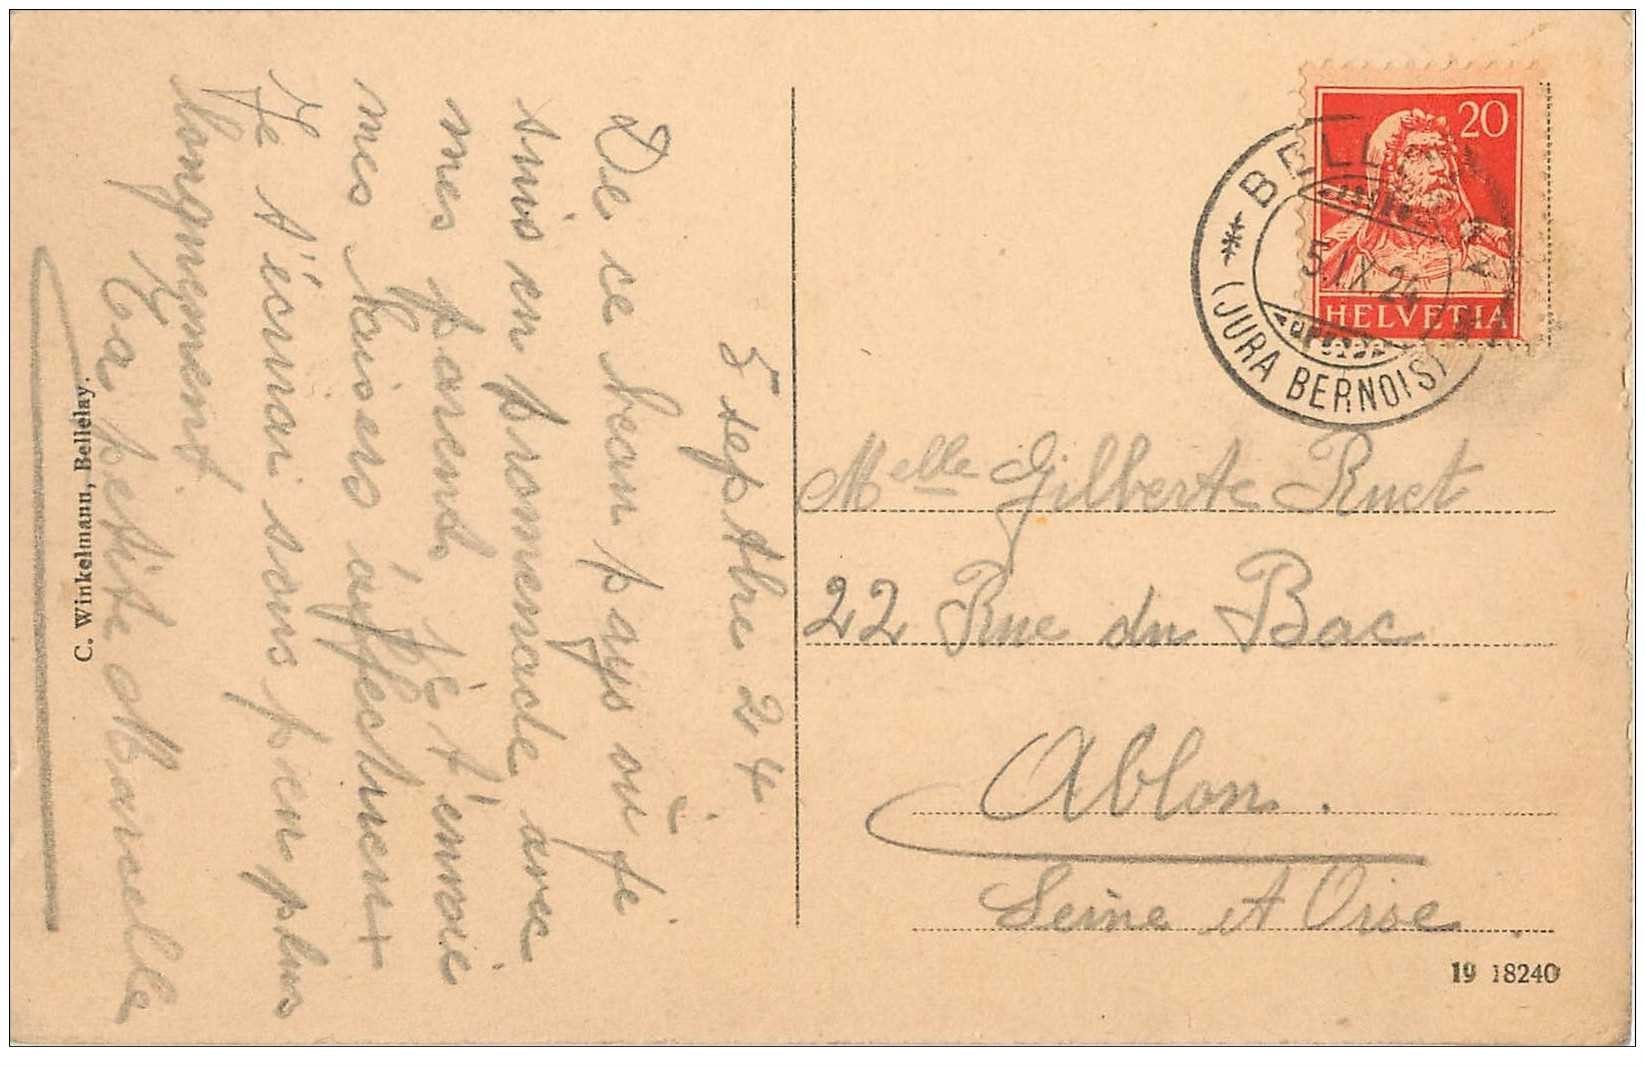 5 septbre 24
De ce beau pays où je
suis en promenade avec
mes parents, je t'envoie
mes baisers affectueux
Je t'écrirai sous peu plus
longuement.
Ta petite Marcelle
C. Winkelmann, Bellelay.
20
HELVETIA
BELLELAY
5.IX.24
(JURA BERNOIS)
Melle Gilberte Ruet
22 Rue du Bac
Ablon.
Seine et Oise.
19 18240